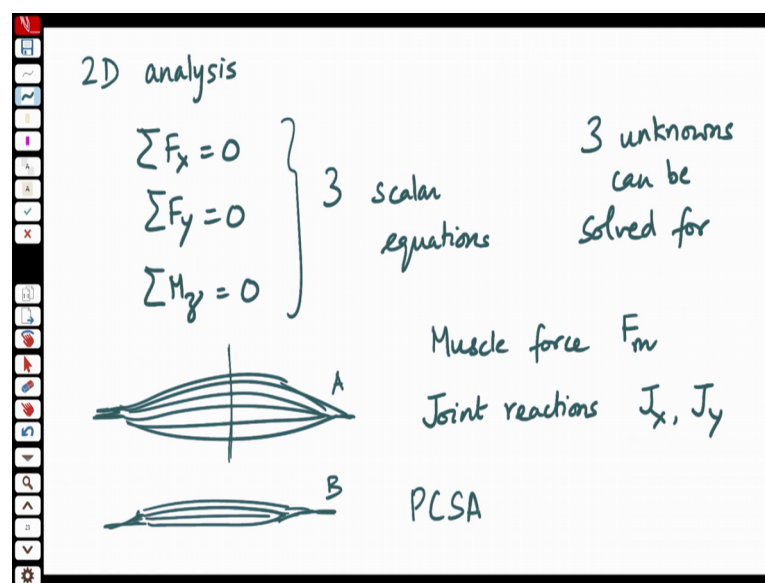 2D analysis
ΣFx = 0
ΣFy = 0
ΣMz = 0
3 scalar
equations
3 unknowns
can be
solved for
Muscle force Fm
Joint reactions Jx, Jy
A
B
PCSA